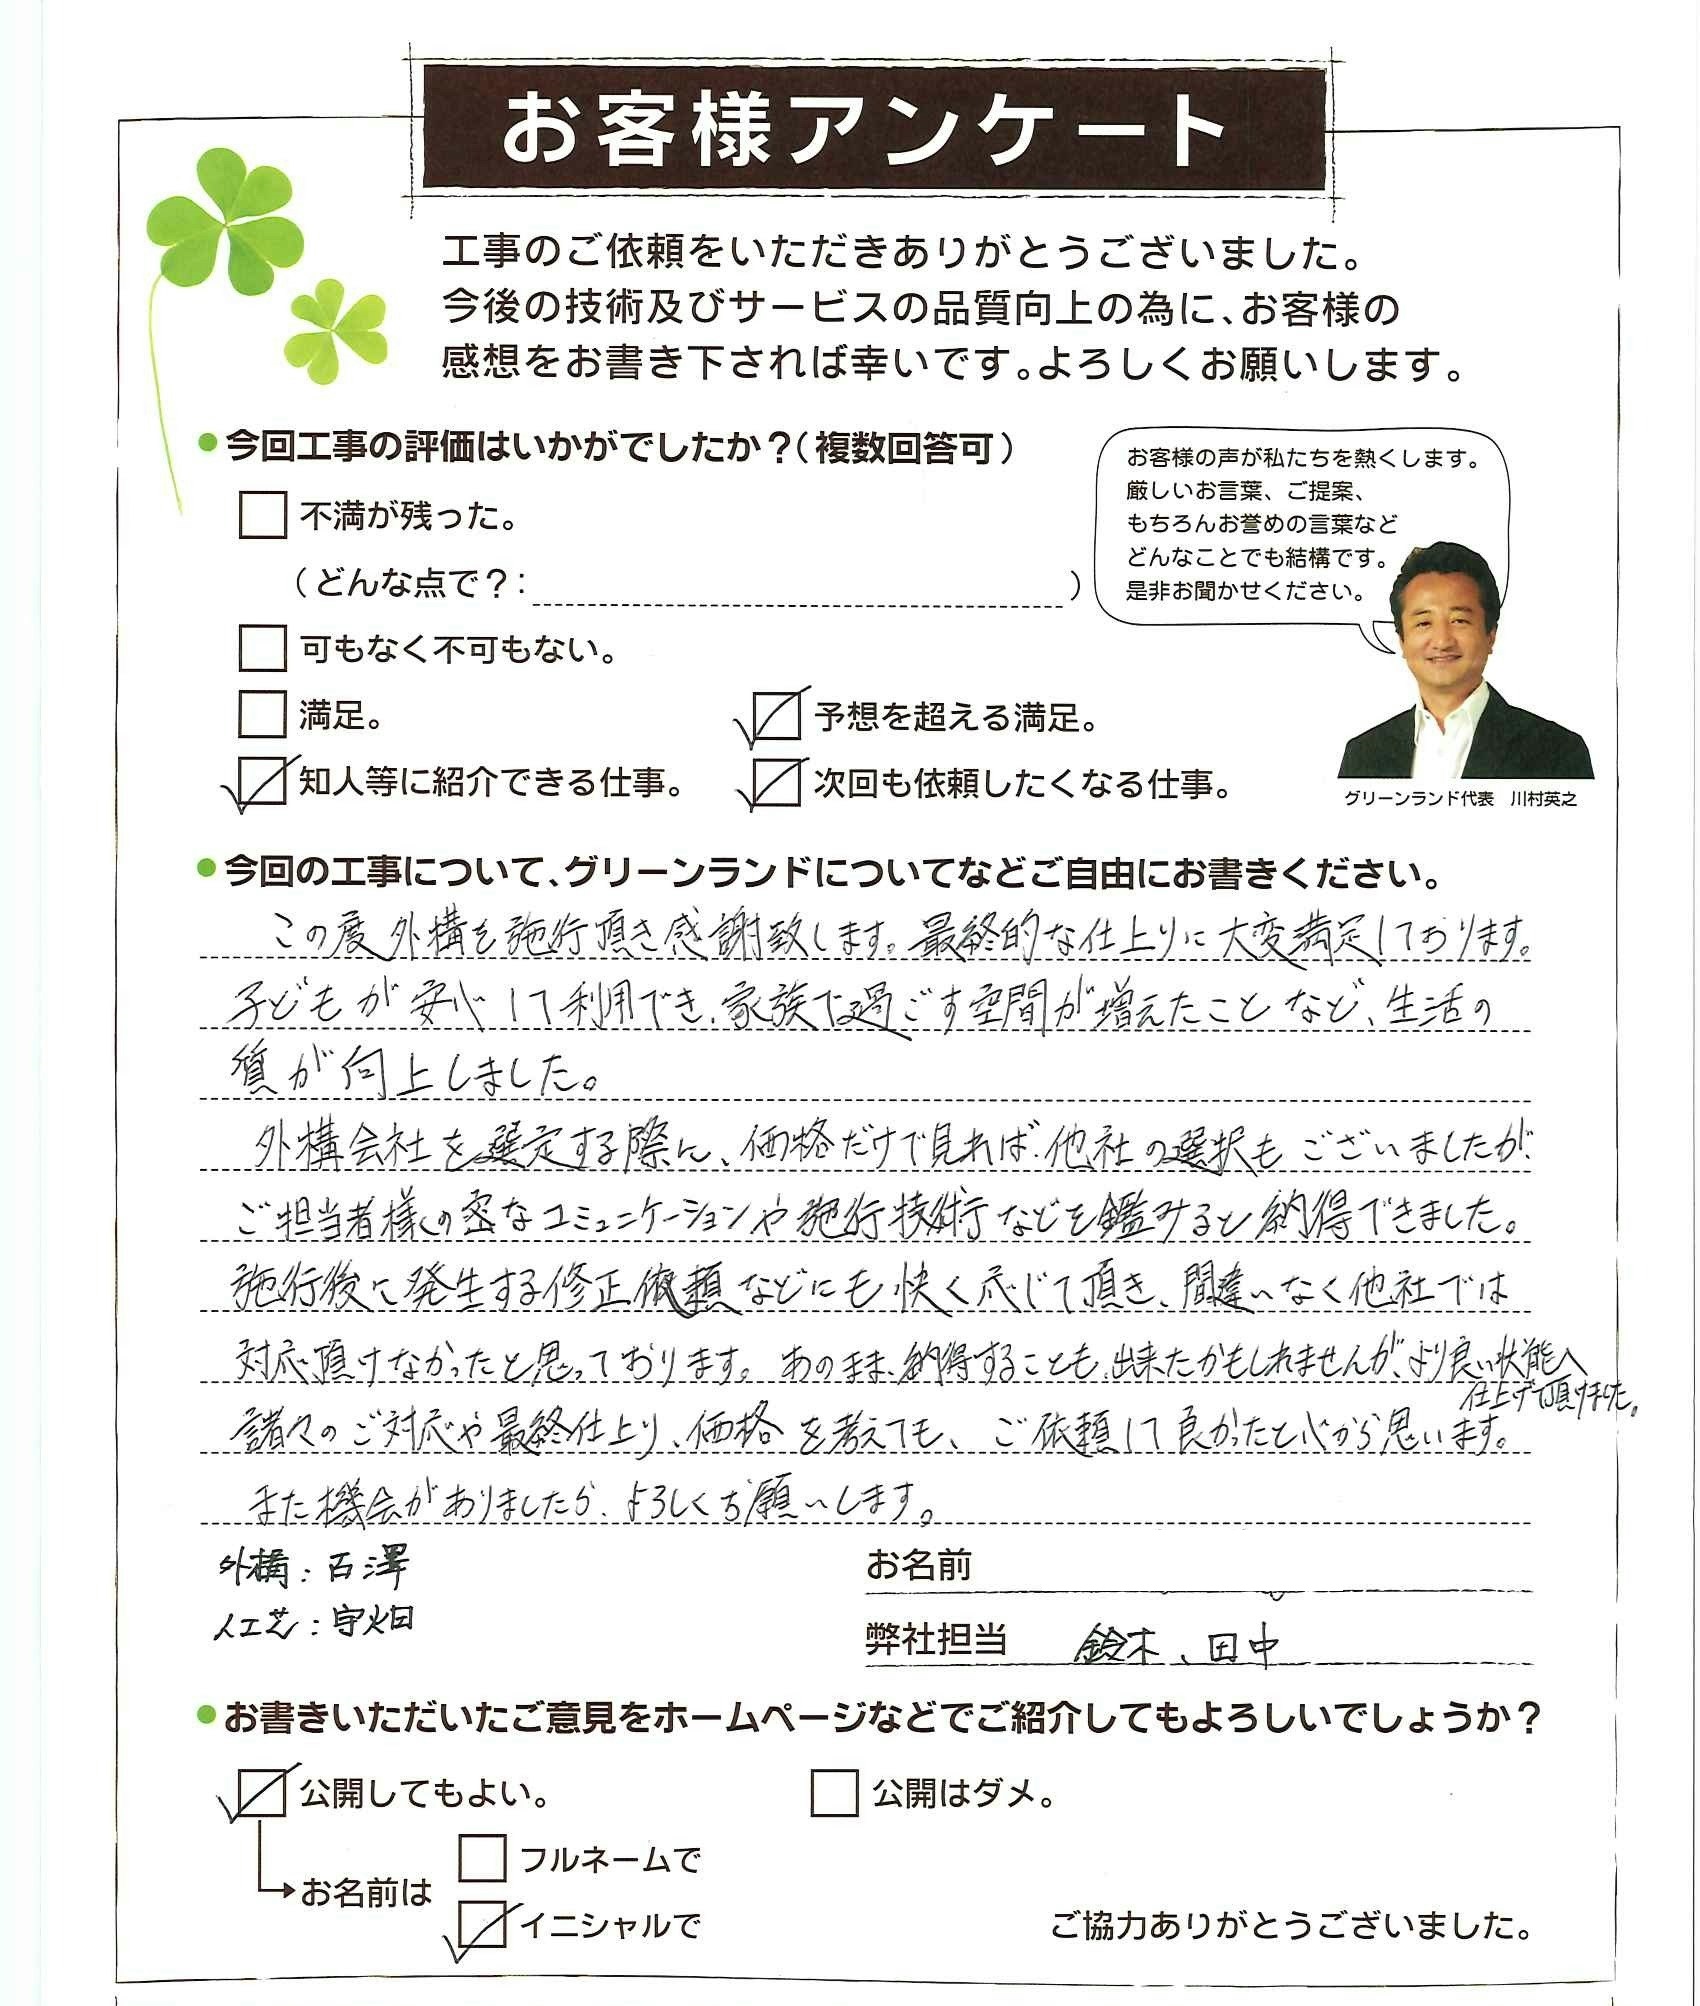 お客様アンケート
工事のご依頼をいただきありがとうございました。
今後の技術及びサービスの品質向上の為に、お客様の
感想をお書き下されば幸いです。よろしくお願いします。
●今回工事の評価はいかがでしたか？（複数回答可）
不満が残った。
（どんな点で？：　）
可もなく不可もない。
満足。
予想を超える満足。
知人等に紹介できる仕事。
次回も依頼したくなる仕事。
お客様の声が私たちを熱くします。
厳しいお言葉、ご提案、
もちろんお誉めの言葉など
どんなことでも結構です。
是非お聞かせください。
グリーンランド代表　川村英之
●今回の工事について、グリーンランドについてなどご自由にお書きください。
この度外構を施行頂き感謝致します。最終的な仕上りに大変満足しております。
子どもが安心して利用でき、家族で過ごす空間が増えたことなど、生活の
質が向上しました。
外構会社を選定する際に、価格だけで見れば他社の選択もございましたが
ご担当者様の密なコミュニケーションや施行技術などを鑑みると納得できました。
施行後に発生する修正依頼などにも快く応じて頂き、間違いなく他社では
対応頂けなかったと思っております。あのまま納得することも出来たかもしれませんが、より良い状態へ
仕上げて頂けました。
諸々のご対応や最終仕上り、価格を考えても、ご依頼して良かったと心から思います。
また機会がありましたら、よろしくお願いします。
外構：石澤
人工芝：宇畑
お名前
弊社担当　鈴木、田中
●お書きいただいたご意見をホームページなどでご紹介してもよろしいでしょうか？
公開してもよい。
公開はダメ。
お名前は
フルネームで
イニシャルで
ご協力ありがとうございました。